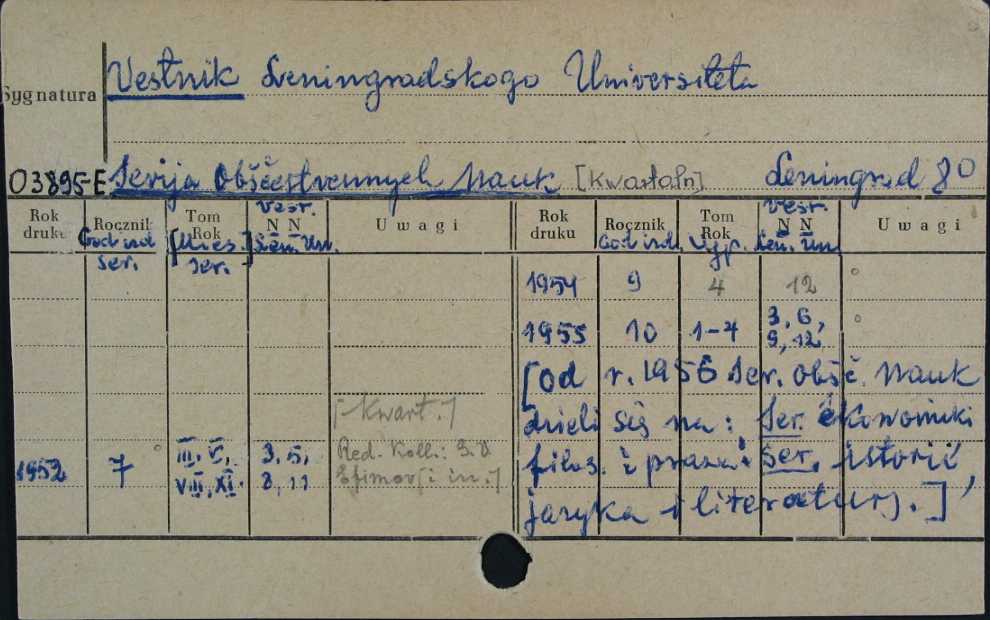 Vestnik Leningradskogo Universiteta
Sygnatura
03895-E Serija Obščestvennych Nauk [Kwartaln] Leningrad 8º
Rok druku Rocznik God izd. ser. Tom Rok [Mies.] ser. N N Vestr. Len. Un. Uwagi Rok druku Rocznik God izd. Tom Rok Vyp. N N Vestr. Len. Un. Uwagi
1954 9 4 12
1955 10 1-4 3, 6, 9, 12
[od r. 1956 Ser. obšč. Nauk
[Kwart.]
dzieli się na: Ser. ekonomiki
1952 7 III, V, VIII, XI. 3, 5, 8, 11 Red. Koll.: Efimov [i in.]
filos. i prava i Ser. istorii,
jazyka i literatury.]